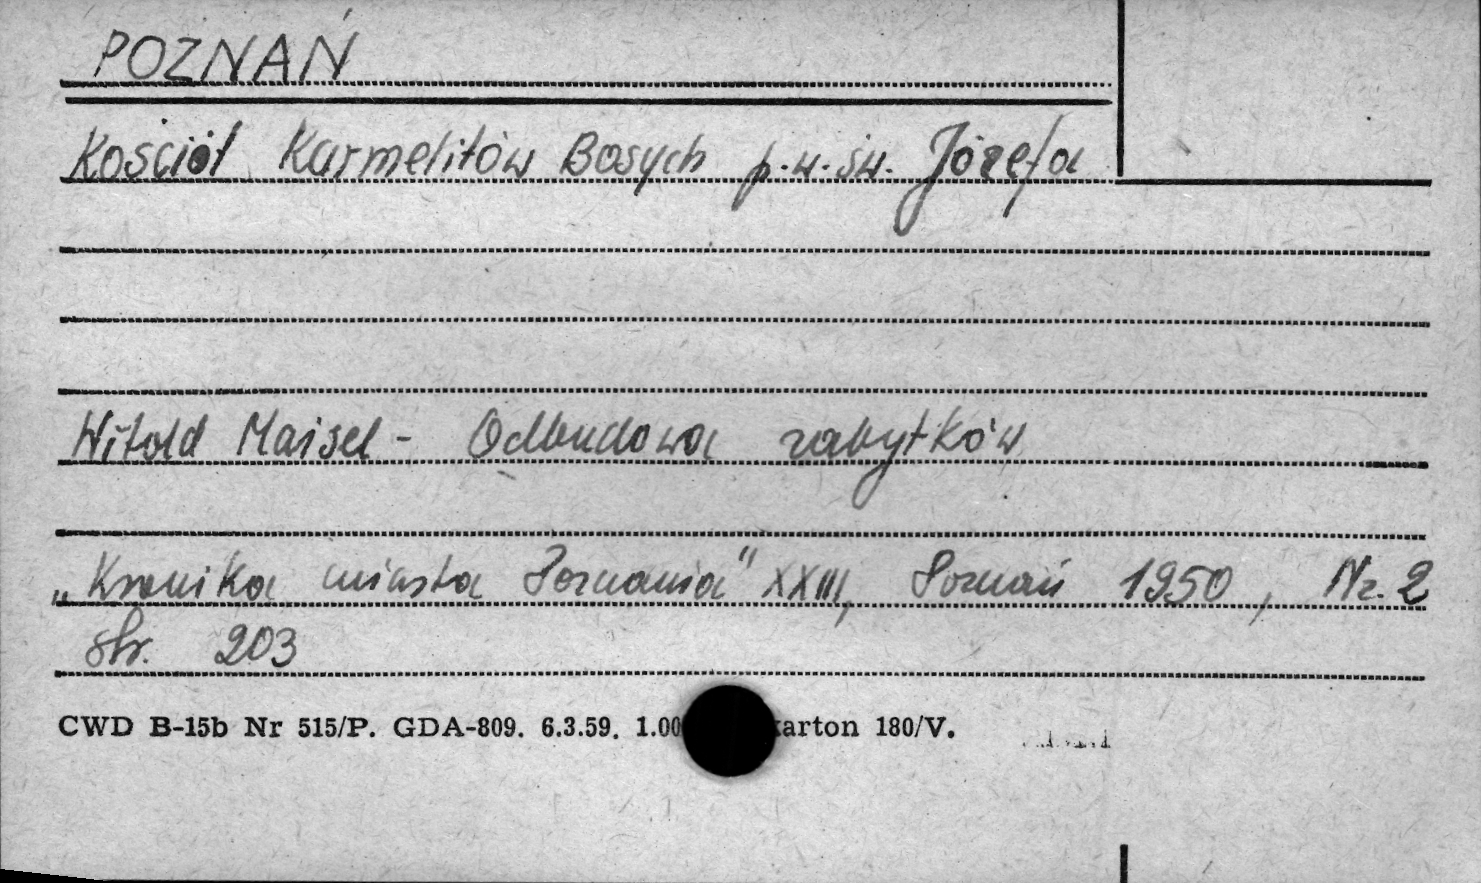 POZNAŃ
Kościół Karmelitów Bosych p.w. św. Józefa
Witold Maisel - Odbudowa zabytków
„Kronika miasta Poznania" XXIII, Poznań 1950, Nr. 2
str. 203
CWD B-15b Nr 515/P. GDA-809. 6.3.59. 1.00 karton 180/V.